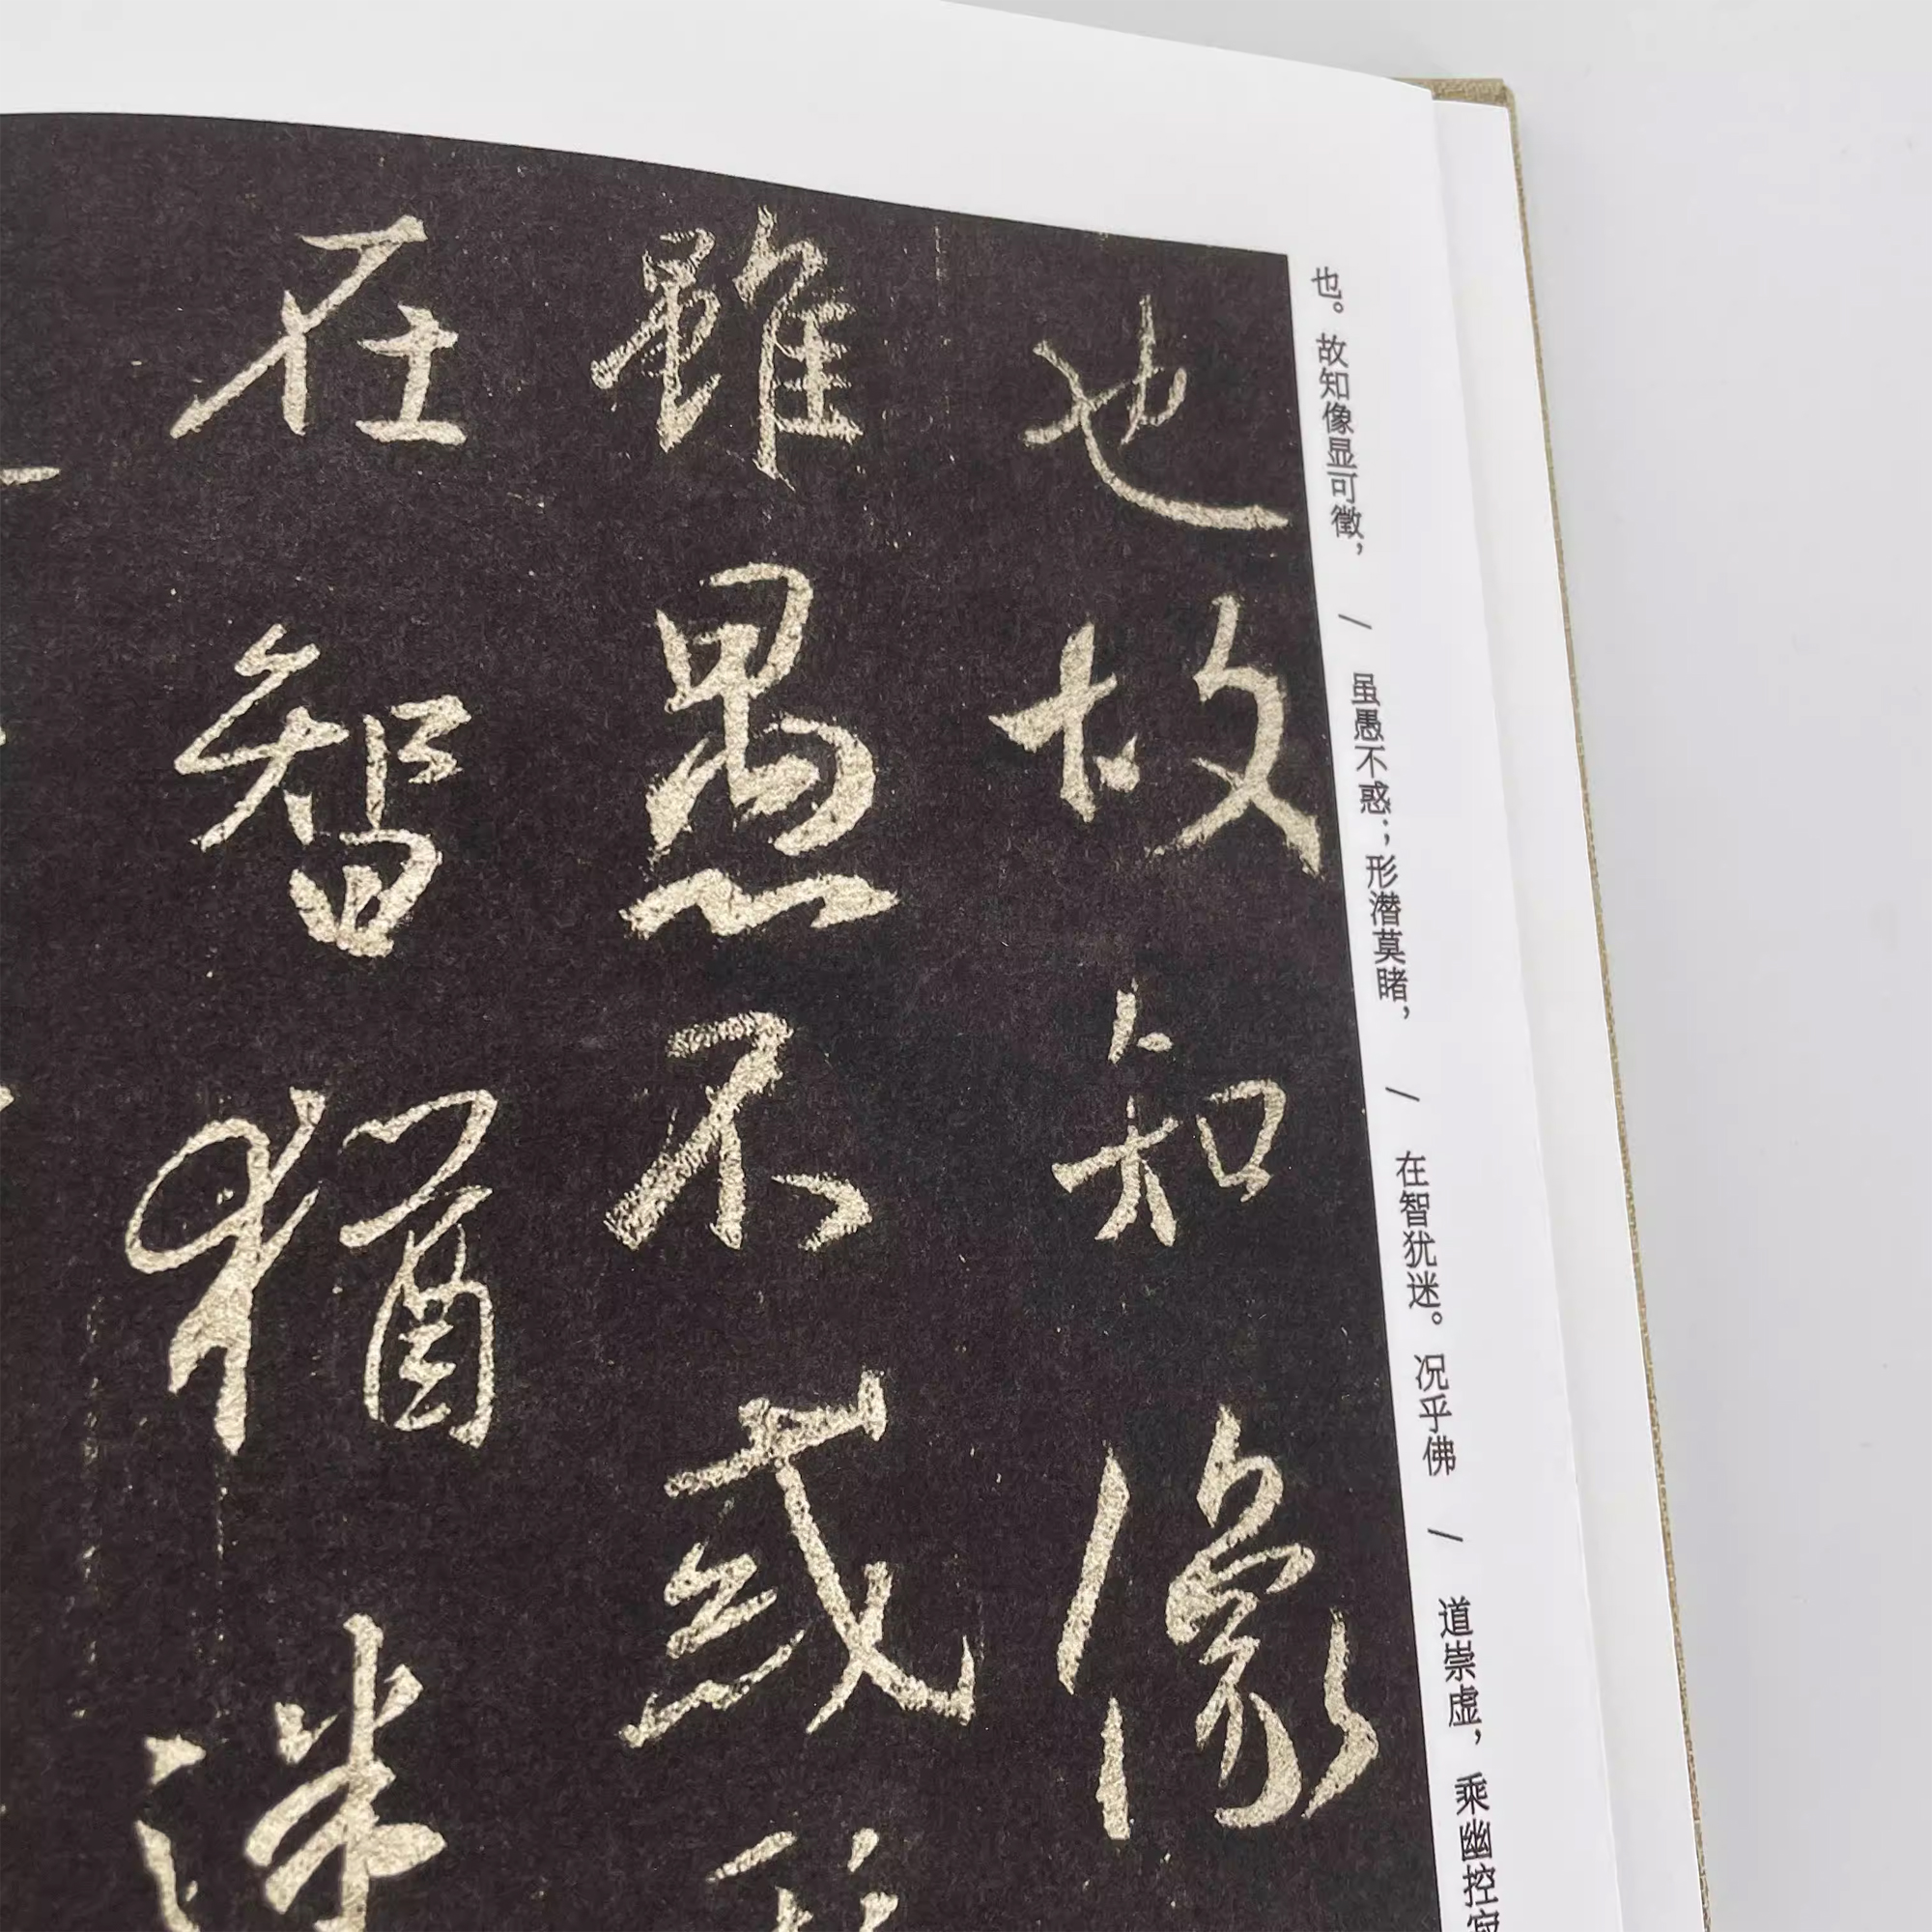 也。故知像显可徵，/虽愚不惑；形潜莫睹，/在智犹迷。况乎佛/道崇虚，乘幽控寂
也故知像
雖愚不惑形
在智猶迷